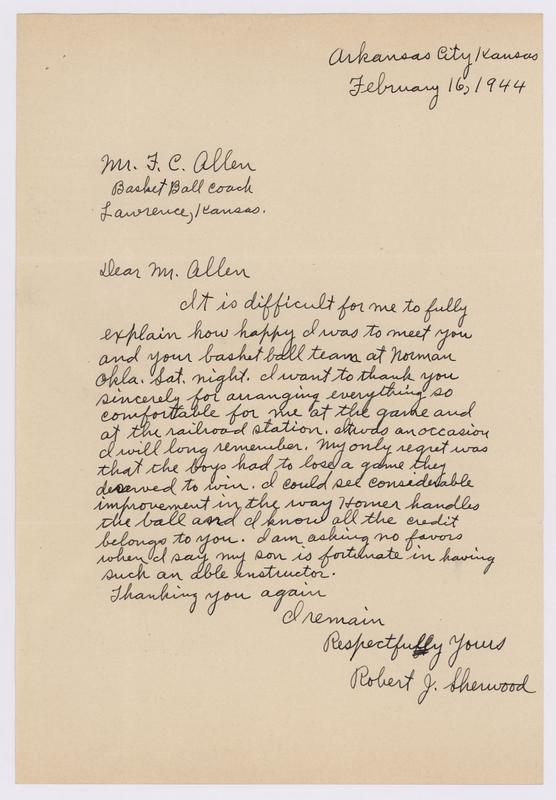 Arkansas City, Kansas
February 16, 1944
Mr. F. C. Allen
Basket Ball Coach
Lawrence, Kansas.
Dear Mr. Allen
It is difficult for me to fully
explain how happy I was to meet you
and your basket ball team at Norman
Okla. Sat. night. I want to thank you
sincerely for arranging everything so
comfortable for me at the game and
at the railroad station. It was an occasion
I will long remember. My only regret was
that the boys had to lose a game they
deserved to win. I could see considerable
improvement in the way Homer handles
the ball and I know all the credit
belongs to you. I am asking no favors
when I say my son is fortunate in having
such an able instructor.
Thanking you again
I remain
Respectfully Yours
Robert J. Sherwood